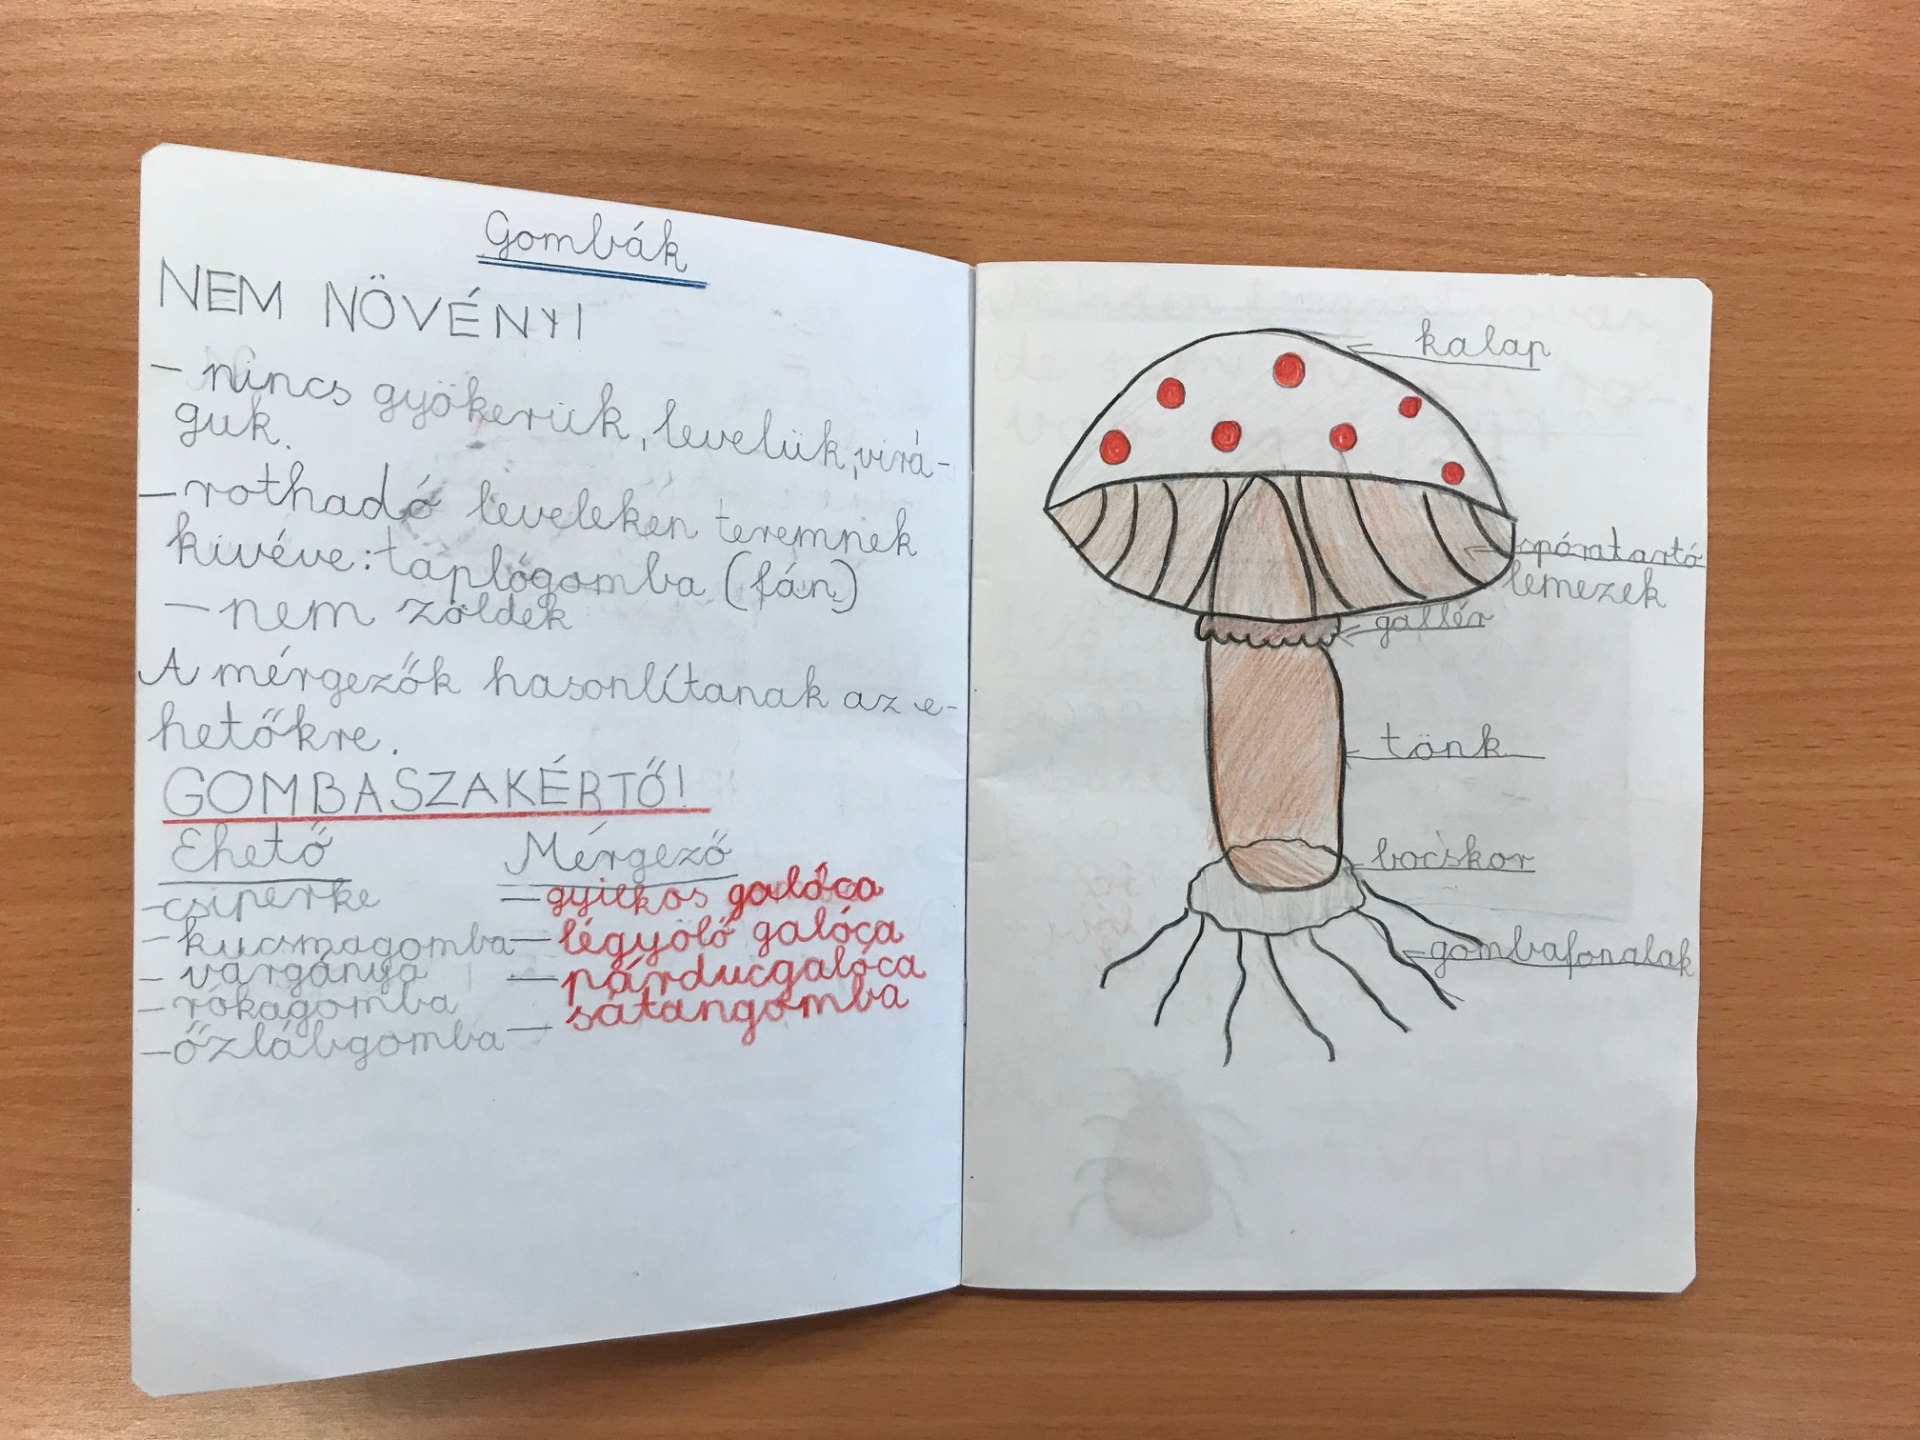 Gombák
NEM NÖVÉNY!
- nincs gyökerük, levelük, virá-
guk.
- rothadó leveleken teremnek
kivéve: taplógomba (fán)
- nem zöldek
A mérgezők hasonlítanak az e-
hetőkre.
GOMBASZAKÉRTŐ!
Ehető
- csiperke
- kucsmagomba
- vargánya
- rókagomba
- őzlábgomba
Mérgező
- gyilkos galóca
- légyölő galóca
- párducgalóca
- sátangomba
kalap
spóratartó
lemezek
gallér
tönk
bocskor
gombafonalak